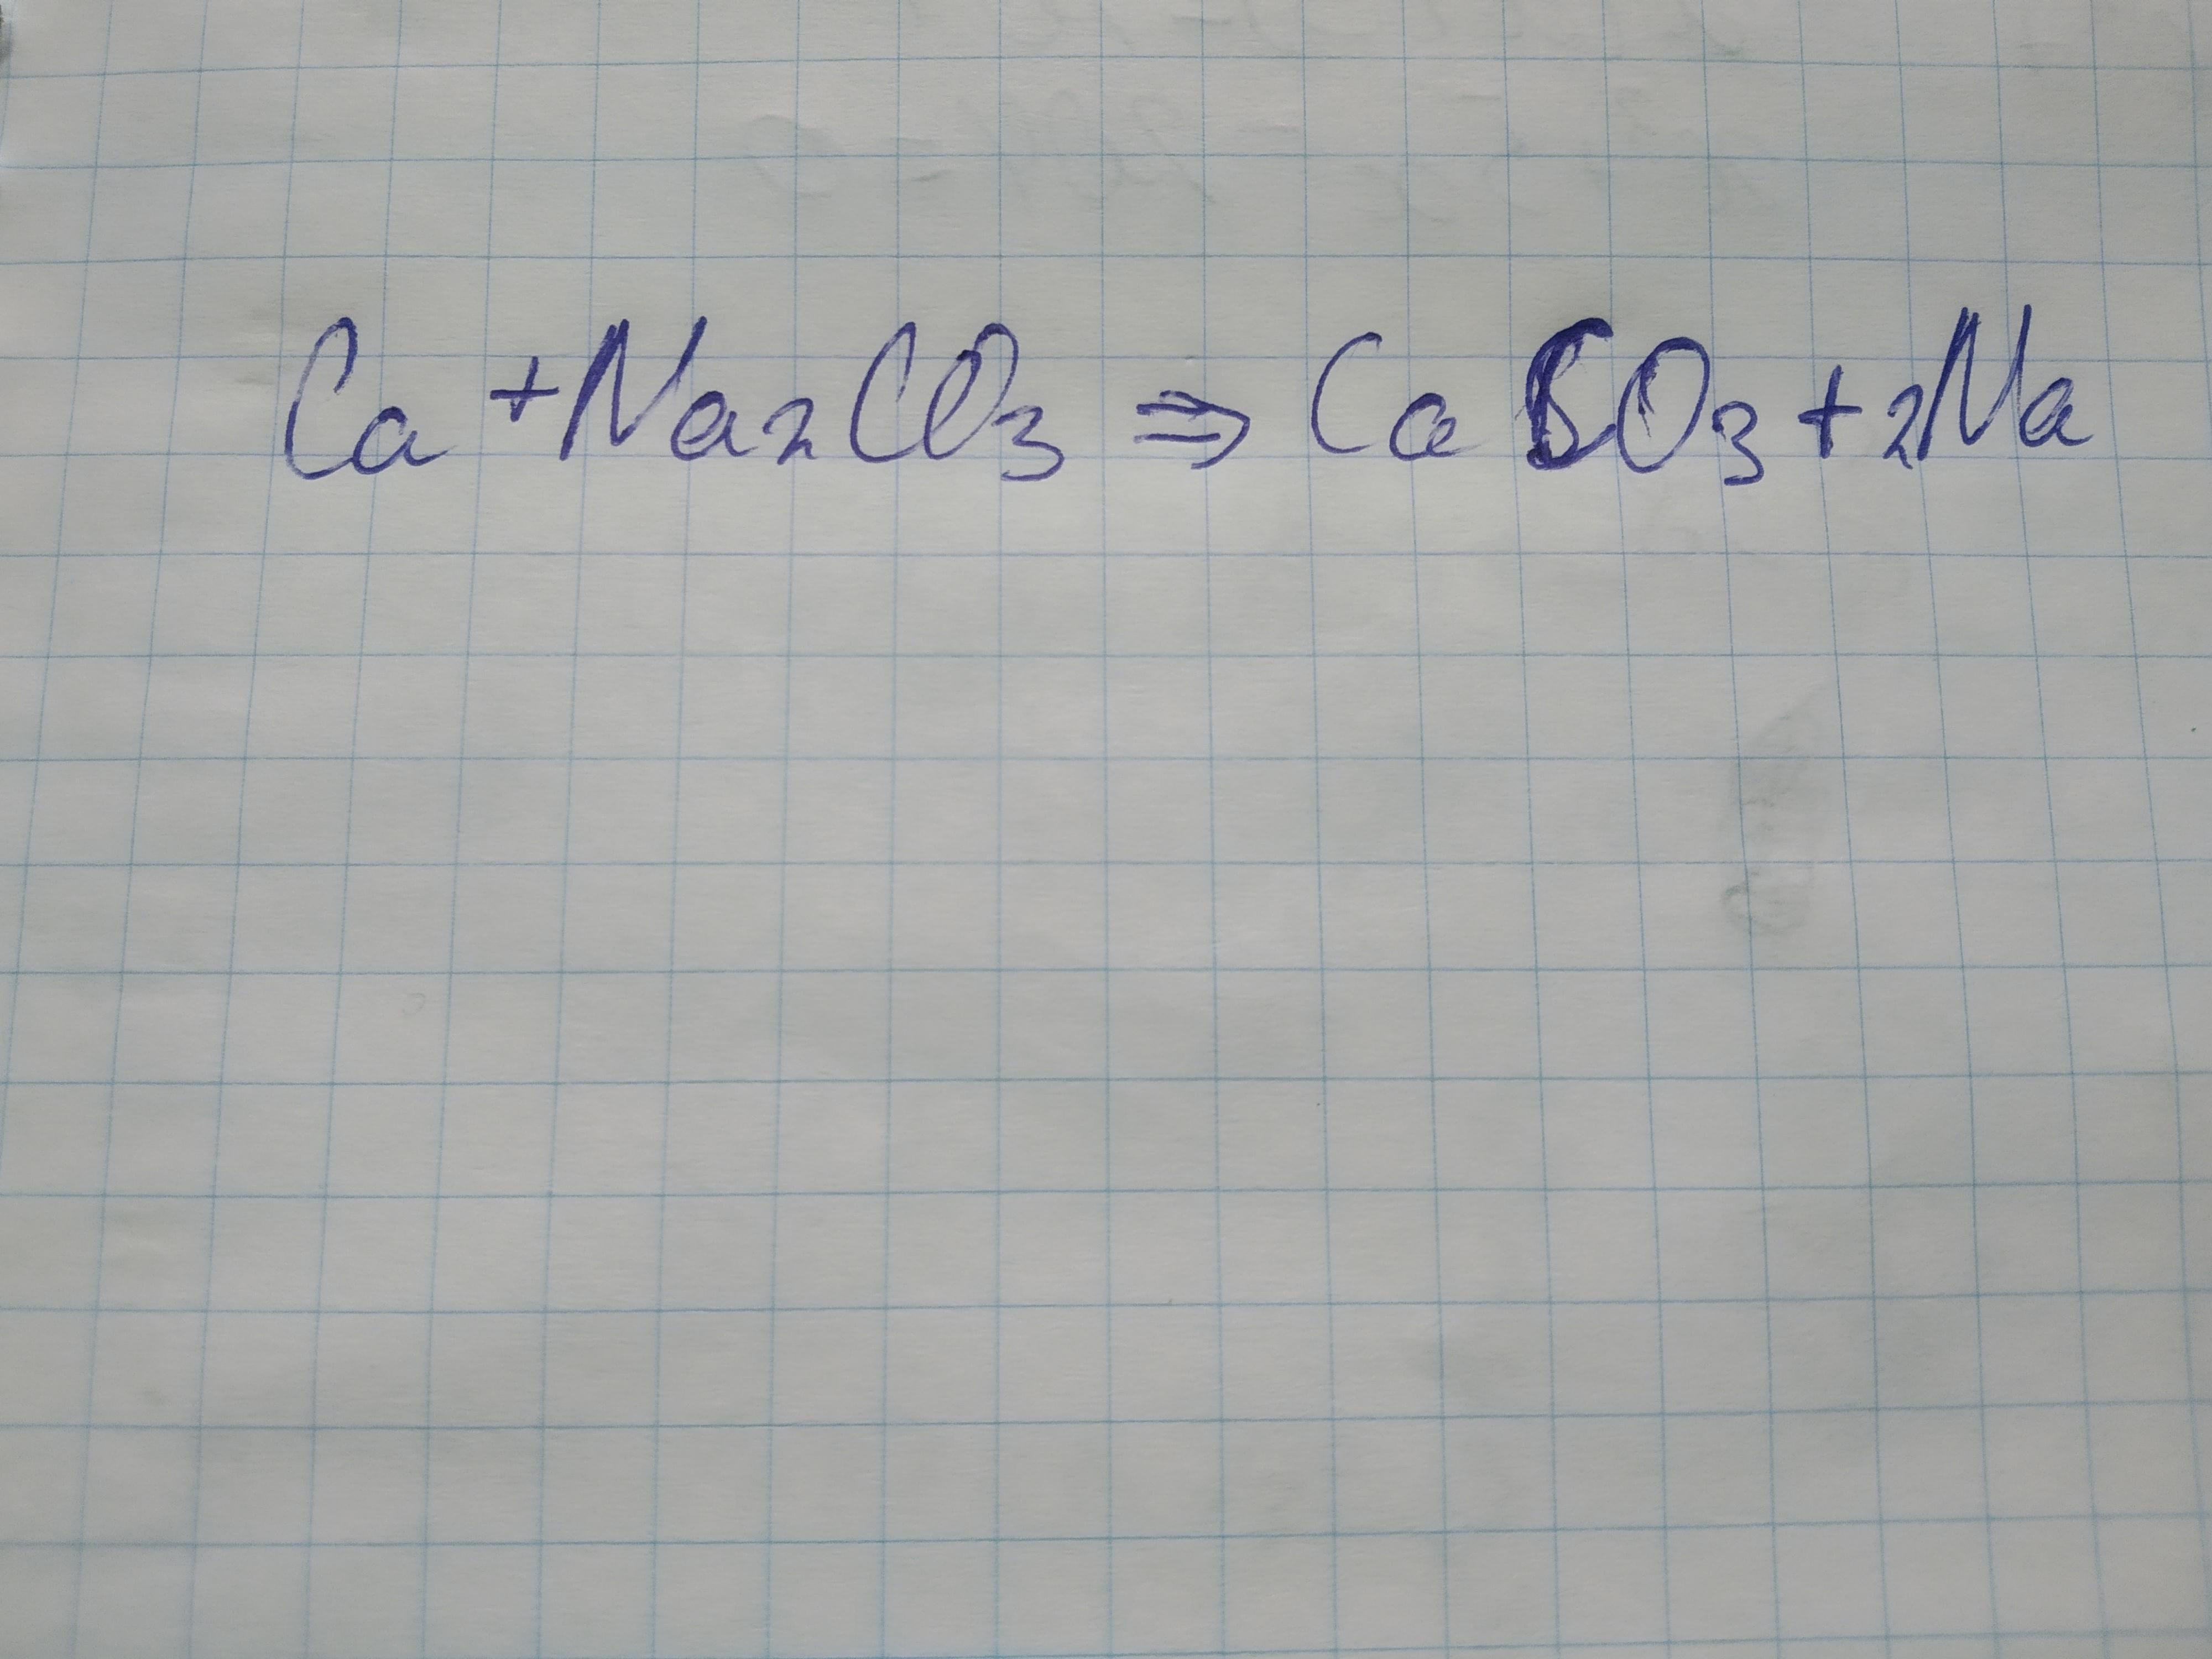 Ca + Na₂CO₃ ⇒ CaCO₃ + 2Na